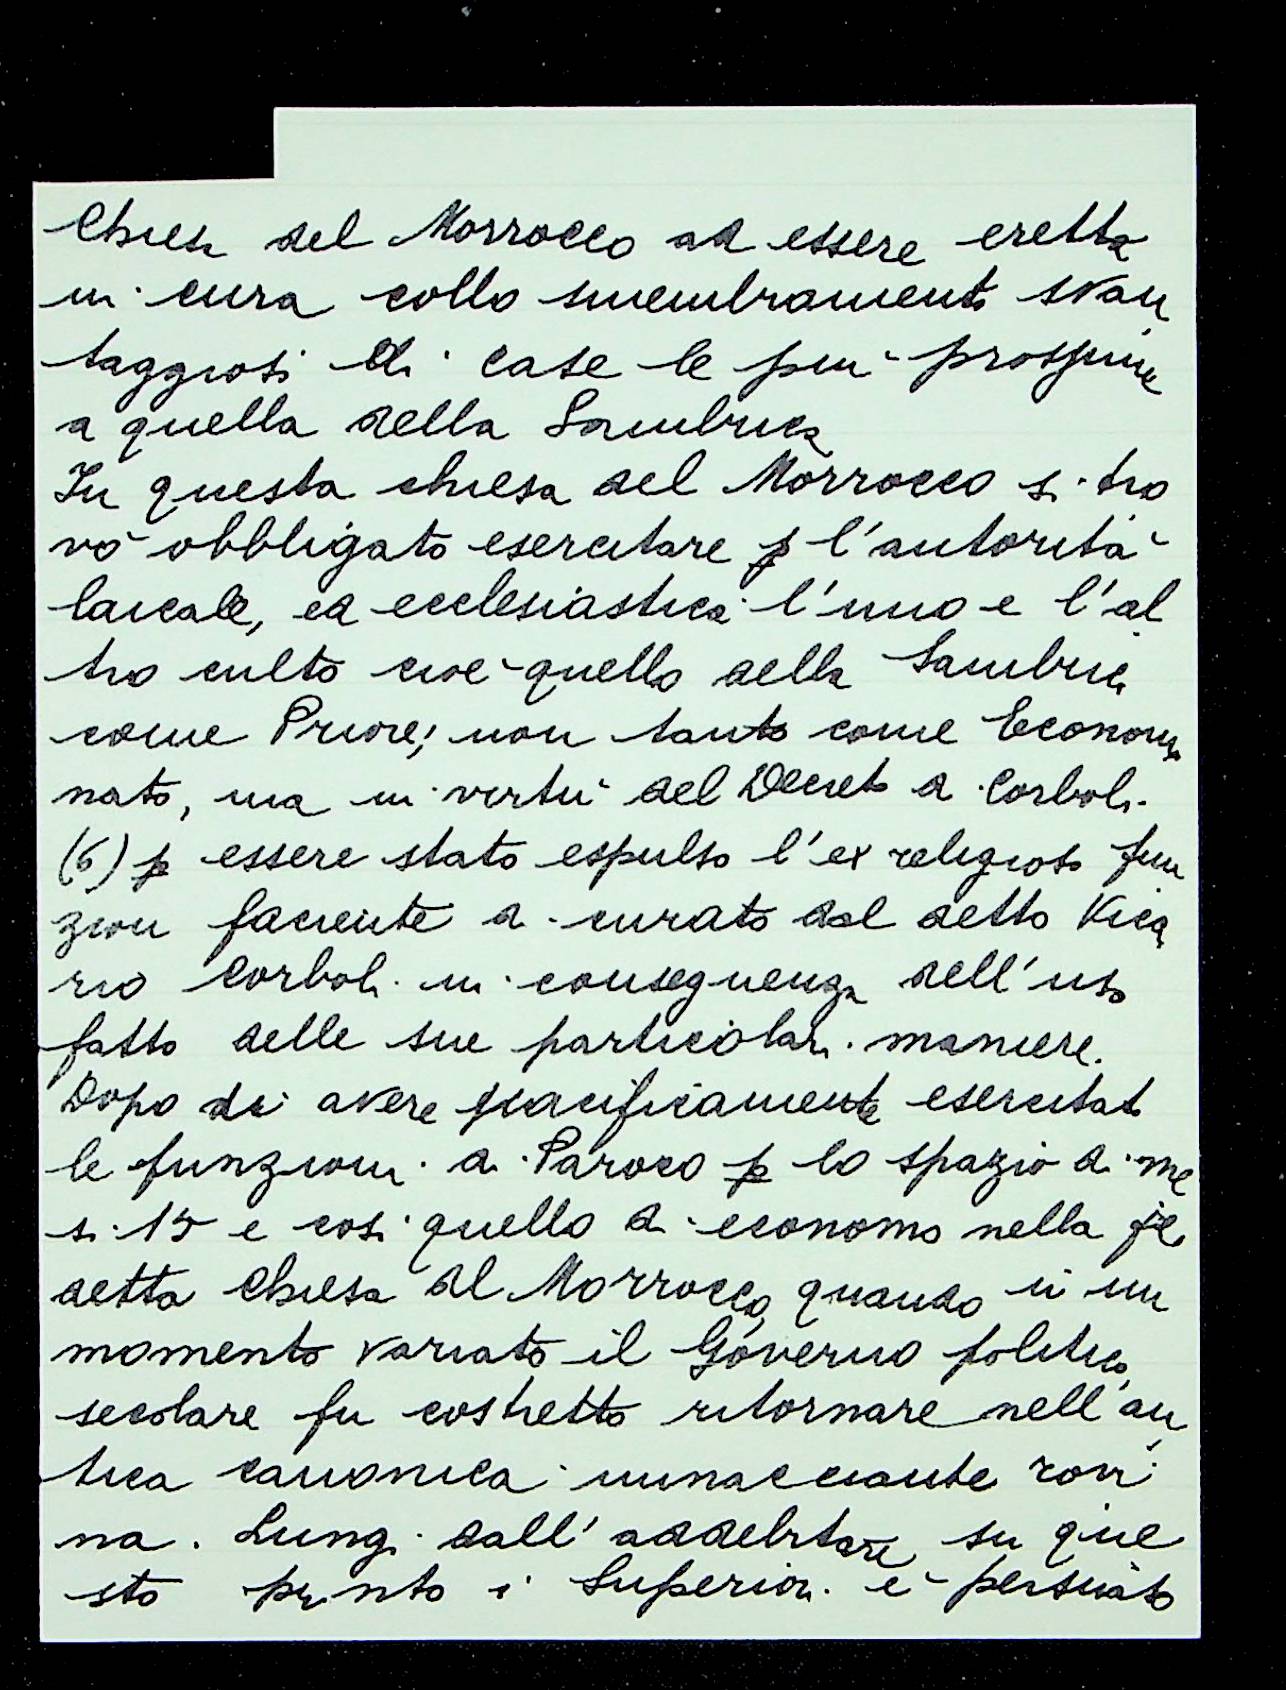 Chiesa del Morrocco ad essere eretta
in cura collo smembramento svan
taggiosi di case le più prossime
a quella della Sambuca
In questa chiesa del Morrocco si tro
vò obbligato esercitare p l'autorità
laicale, ed ecclesiastica l'uno e l'al
tro culto cioè quello della Sambuca
come Priore, non tanto come Econom
nato, ma in vertù del Decreto di Corboli
(6) p essere stato espulso l'ex religioso fun
zion faciente di curato dal detto Vica
rio Corboli in conseguenza dell'uso
fatto delle sue particolari maniere.
Dopo di avere pacificamente esercitato
le funzioni di Paroco p lo spazio di me
si 15 e così quello di economo nella
detta Chiesa al Morrocco, quando in un
momento variato il Governo politico
secolare fu costretto ritornare nell'an
tica canonica minacciante rovi
na. Lungi dall'addebitare su que
sto punto i Superiori è persuaso